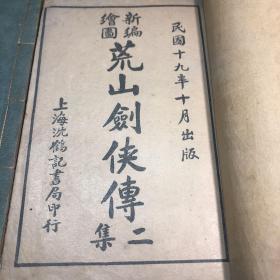 民國十九年十月出版
新編
繪圖
荒山劍俠傳二集
上海沈鶴記書局印行